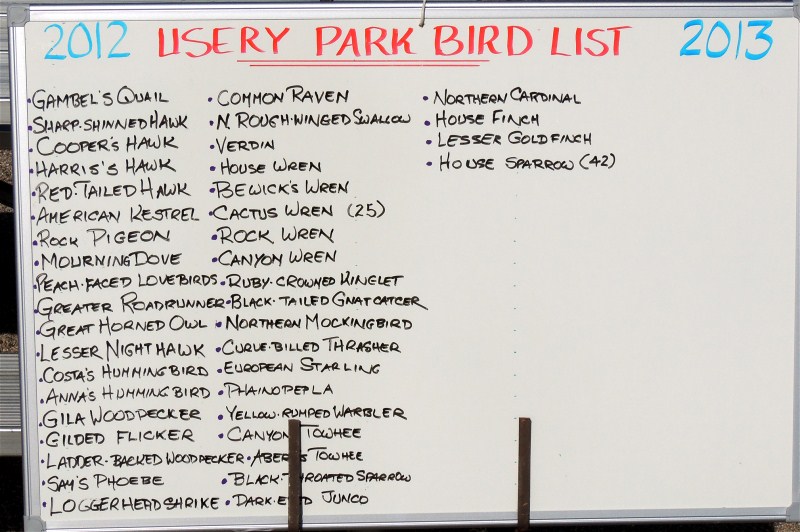 2012 USERY PARK BIRD LIST 2013
• GAMBEL'S QUAIL
• SHARP-SHINNED HAWK
• COOPER'S HAWK
• HARRIS'S HAWK
• RED-TAILED HAWK
• AMERICAN KESTREL
• ROCK PIGEON
• MOURNING DOVE
PEACH-FACED LOVEBIRDS
• GREATER ROADRUNNER
• GREAT HORNED OWL
• LESSER NIGHTHAWK
• COSTA'S HUMMINGBIRD
• ANNA'S HUMMINGBIRD
• GILA WOODPECKER
• GILDED FLICKER
• LADDER-BACKED WOODPECKER
• SAY'S PHOEBE
• LOGGERHEAD SHRIKE
• COMMON RAVEN
• N. ROUGH-WINGED SWALLOW
• VERDIN
• HOUSE WREN
• BEWICK'S WREN
• CACTUS WREN (25)
• ROCK WREN
• CANYON WREN
• RUBY-CROWNED KINGLET
• BLACK-TAILED GNATCATCER
• NORTHERN MOCKINGBIRD
• CURVE-BILLED THRASHER
• EUROPEAN STARLING
• PHAINOPEPLA
• YELLOW-RUMPED WARBLER
• CANYON TOWHEE
• ABERT'S TOWHEE
• BLACK-THROATED SPARROW
• DARK-EYED JUNCO
• NORTHERN CARDINAL
• HOUSE FINCH
• LESSER GOLDFINCH
• HOUSE SPARROW (42)